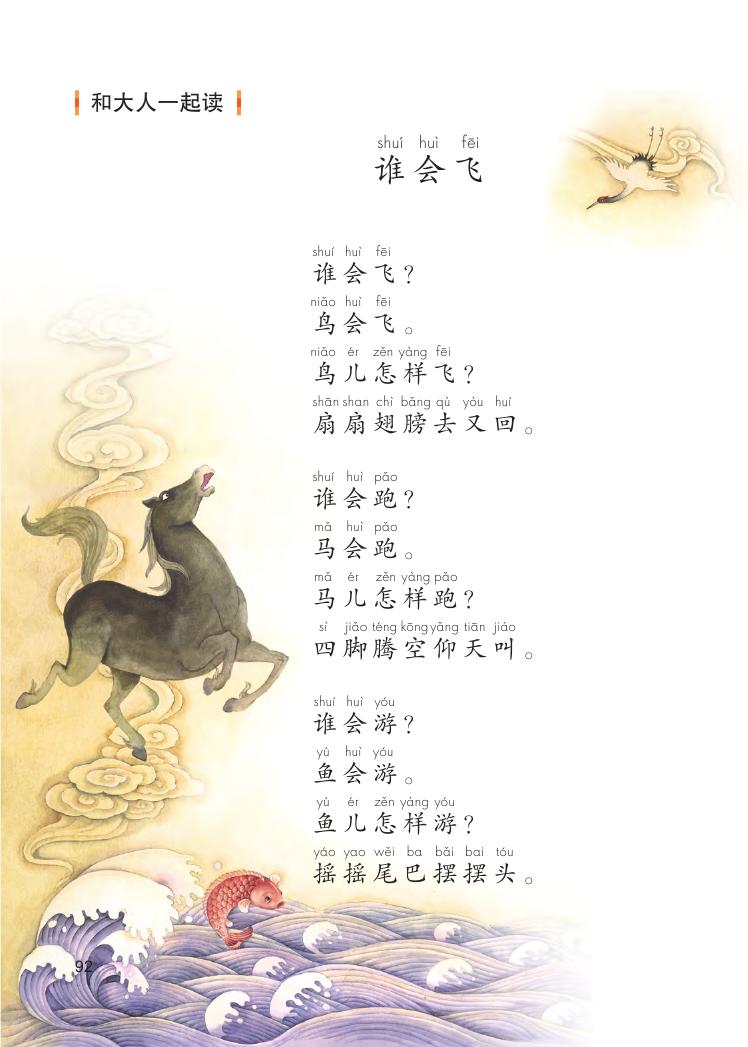 和大人一起读
shuí huì fēi
谁会飞
shuí huì fēi
谁会飞？
niǎo huì fēi
鸟会飞。
niǎo ér zěn yàng fēi
鸟儿怎样飞？
shān shan chì bǎng qù yòu huí
扇扇翅膀去又回。
shuí huì pǎo
谁会跑？
mǎ huì pǎo
马会跑。
mǎ ér zěn yàng pǎo
马儿怎样跑？
sì jiǎo téng kōng yǎng tiān jiào
四脚腾空仰天叫。
shuí huì yóu
谁会游？
yú huì yóu
鱼会游。
yú ér zěn yàng yóu
鱼儿怎样游？
yáo yao wěi ba bǎi bai tóu
摇摇尾巴摆摆头。
92